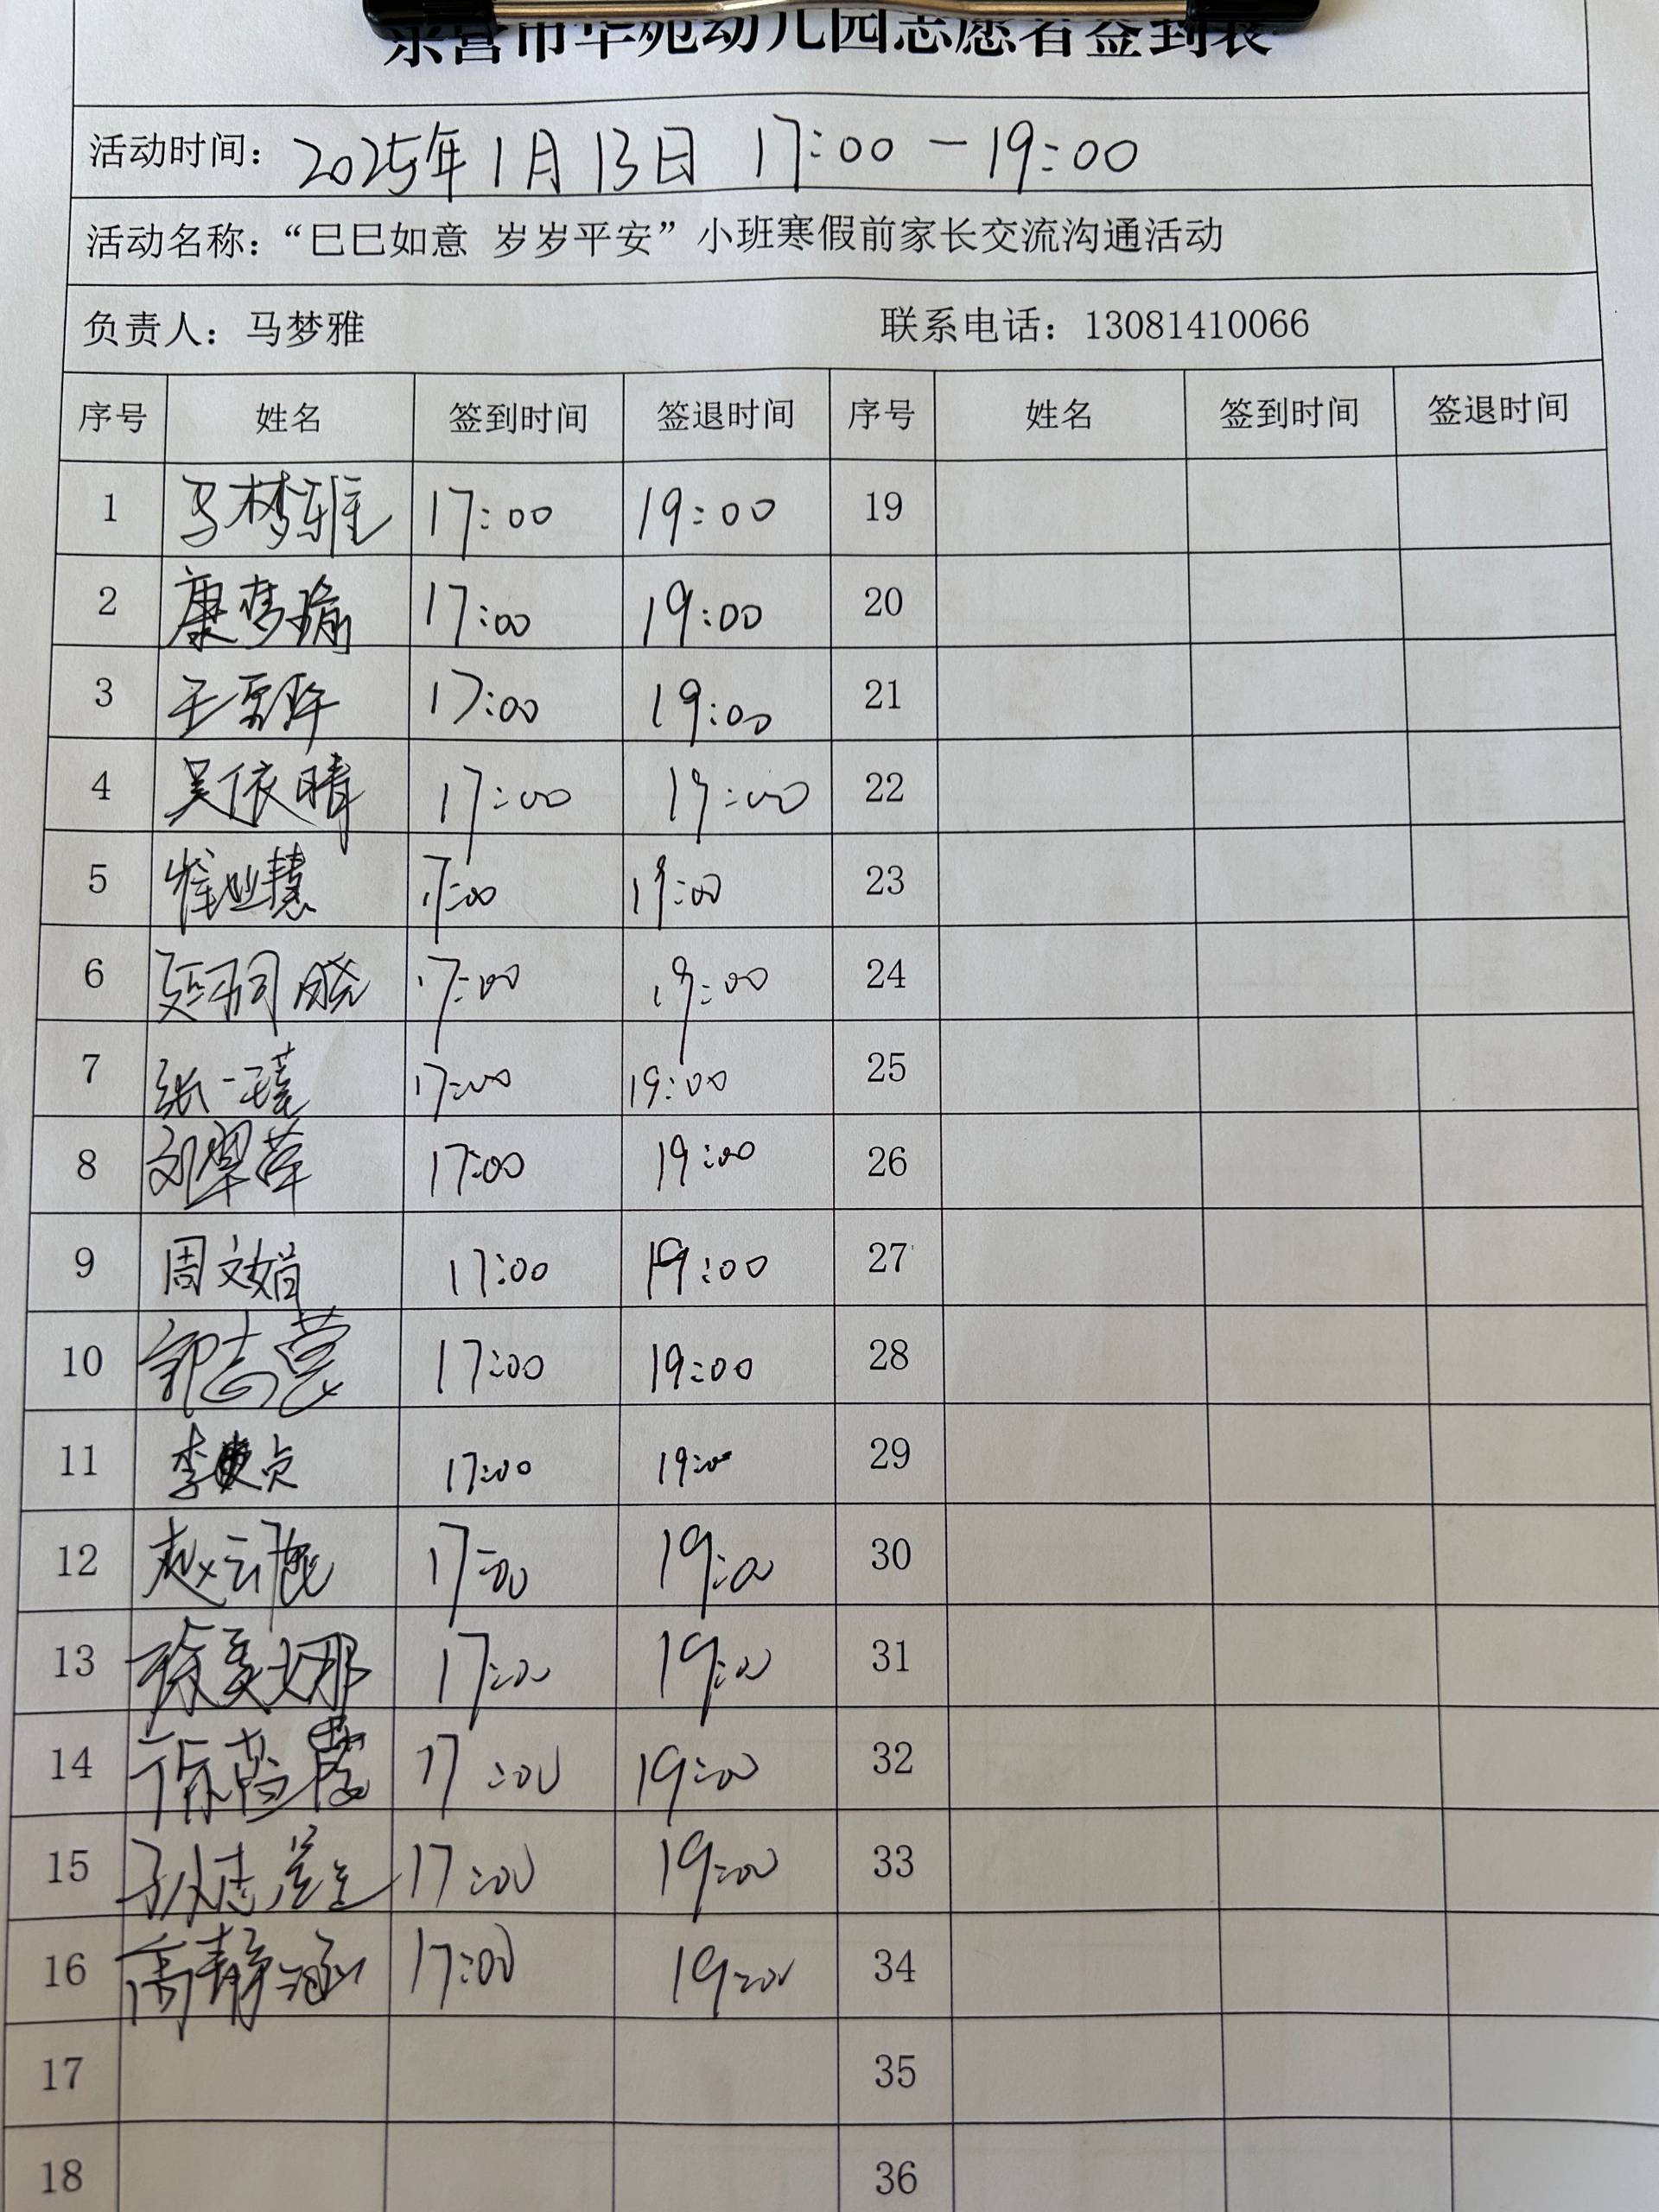 东营市华苑幼儿园志愿者签到表
活动时间：2025年1月13日 17:00－19:00
活动名称：“巳巳如意 岁岁平安”小班寒假前家长交流沟通活动
负责人：马梦雅 联系电话：13081410066
序号 姓名 签到时间 签退时间 序号 姓名 签到时间 签退时间
1 马梦雅 17:00 19:00 19
2 康梦瑜 17:00 19:00 20
3 王 17:00 19:00 21
4 吴依晴 17:00 19:00 22
5 崔业慧 17:00 19:00 23
6 晓 17:00 19:00 24
7 张一 17:00 19:00 25
8 刘翠萍 17:00 19:00 26
9 周文娟 17:00 19:00 27
10 郭志营 17:00 19:00 28
11 李 贞 17:00 19:00 29
12 赵云 17:00 19:00 30
13 徐美娜 17:00 19:00 31
14 徐 17:00 19:00 32
15 孙志 17:00 19:00 33
16 高静涵 17:00 19:00 34
17 35
18 36